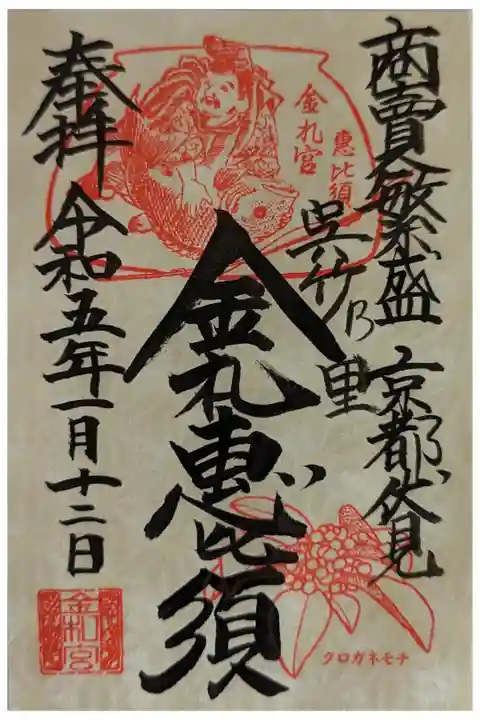 商賣繁盛 京都伏見
惠比須
金札宮
呉竹の里
金札惠比須
奉拝 令和五年一月十二日
金札宮
クロガネモチ